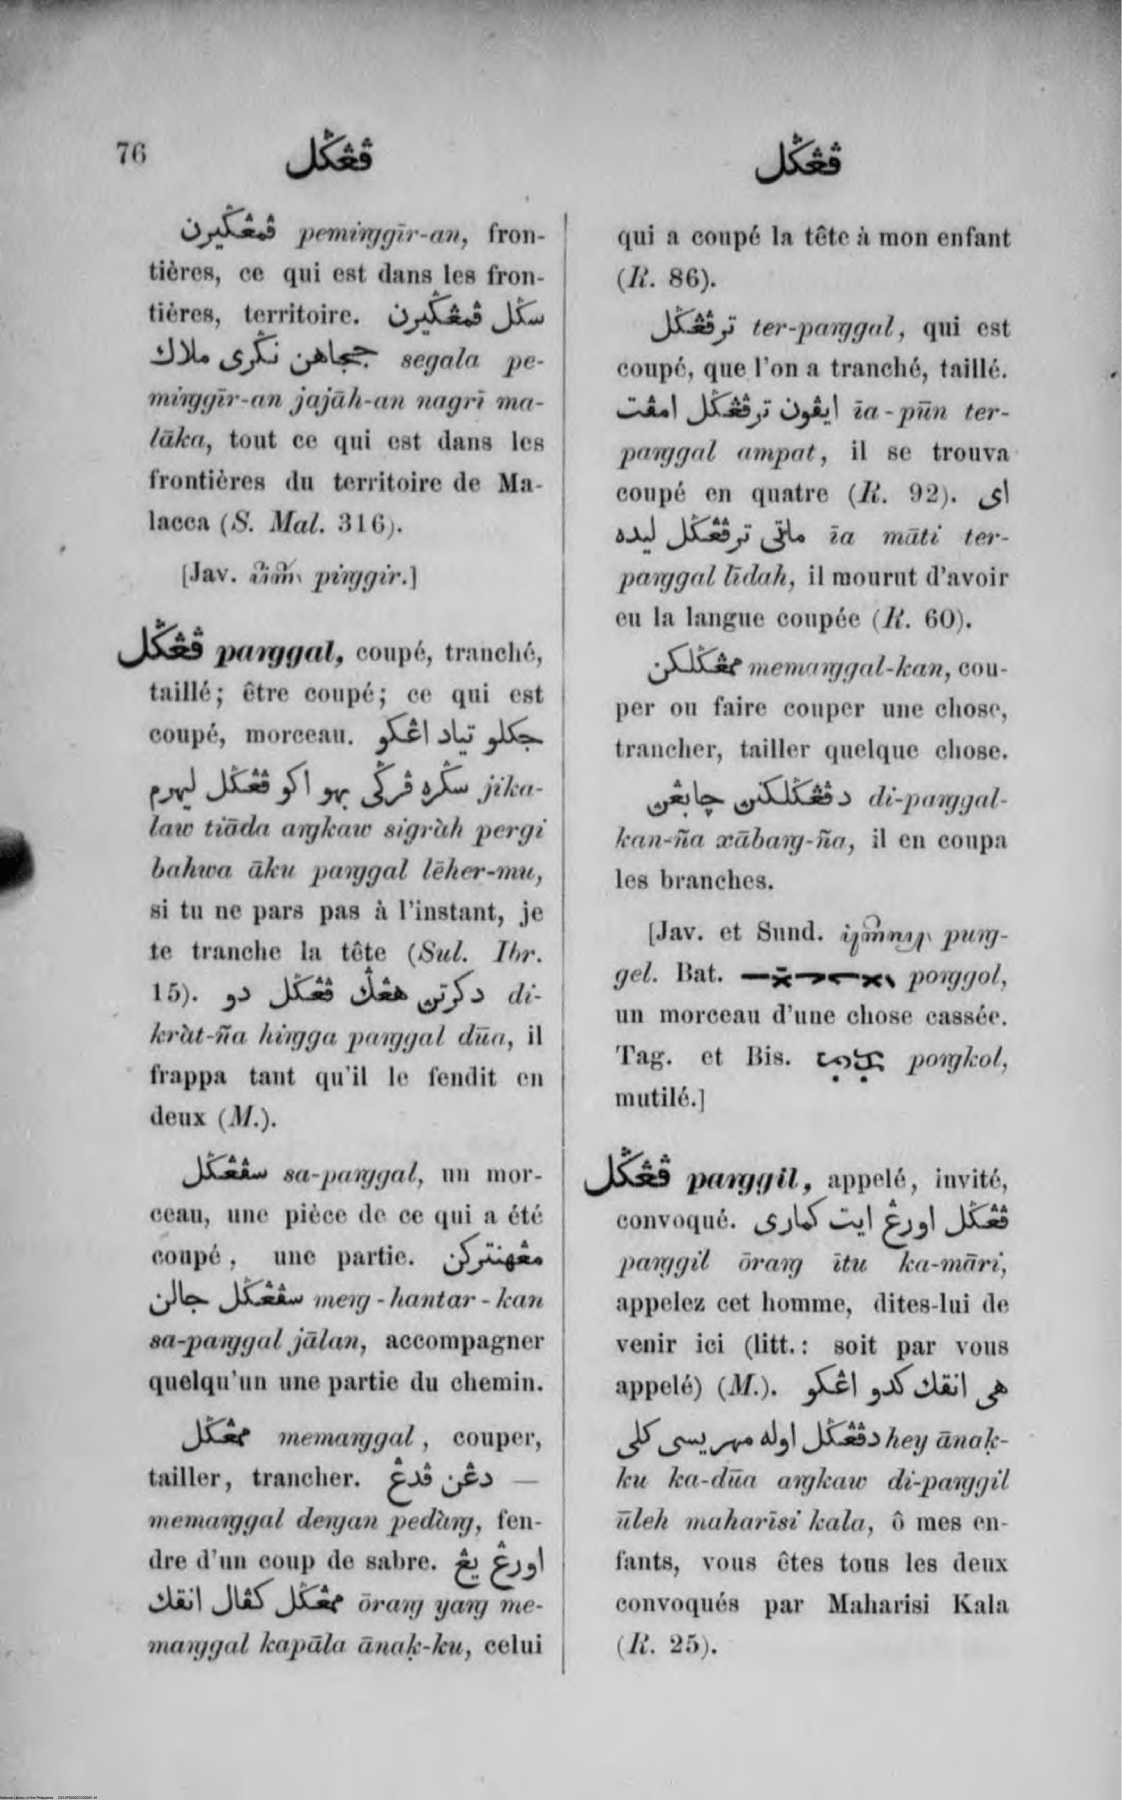 76 ڤڠݢل ڤڠݢل
ڤمڠݢيرن pemiŋgīr-an, fron-
tières, ce qui est dans les fron-
tières, territoire. سݢل ڤمڠݢيرن
ججاهن نݢري ملاك segala pe-
miŋgīr-an jajāh-an nagrī ma-
lāka, tout ce qui est dans les
frontières du territoire de Ma-
lacca (S. Mal. 316).
[Jav. piŋgir.]
ڤڠݢل paŋgal, coupé, tranché,
taillé; être coupé; ce qui est
coupé, morceau. جكلو تياد اڠكو
سݢره ڤرݢي بهو اكو ڤڠݢل ليهرم jika-
law tiāda aŋkaw sigràh pergi
bahwa āku paŋgal lēher-mu,
si tu ne pars pas à l'instant, je
te tranche la tête (Sul. Ibr.
15). دكرتڽ هڠݢ ڤڠݢل دو di-
kràt-ña hiŋga paŋgal dūa, il
frappa tant qu'il le fendit en
deux (M.).
سڤڠݢل sa-paŋgal, un mor-
ceau, une pièce de ce qui a été
coupé, une partie. مڠهنتركن
سڤڠݢل جالن meŋ-hantar-kan
sa-paŋgal jālan, accompagner
quelqu'un une partie du chemin.
ممڠݢل memaŋgal, couper,
tailler, trancher. دڠن ڤدڠ —
memaŋgal deŋan pedàŋ, fen-
dre d'un coup de sabre. اورڠ يڠ
ممڠݢل كڤال انقك ōraŋ yaŋ me-
maŋgal kapāla ānaḳ-ku, celui
qui a coupé la tête à mon enfant
(R. 86).
ترڤڠݢل ter-paŋgal, qui est
coupé, que l'on a tranché, taillé.
ايڤون ترڤڠݢل امڤت īa-pūn ter-
paŋgal ampat, il se trouva
coupé en quatre (R. 92). اى
ماتي ترڤڠݢل ليده īa māti ter-
paŋgal līdah, il mourut d'avoir
eu la langue coupée (R. 60).
ممڠݢلكن memaŋgal-kan, cou-
per ou faire couper une chose,
trancher, tailler quelque chose.
دڤڠݢلكنڽ چابڠڽ di-paŋgal-
kan-ña xābaŋ-ña, il en coupa
les branches.
[Jav. et Sund. puŋ-
gel. Bat. poŋgol,
un morceau d'une chose cassée.
Tag. et Bis. poŋkol,
mutilé.]
ڤڠݢل paŋgil, appelé, invité,
convoqué. ڤڠݢل اورڠ ايت كماري
paŋgil ōraŋ ītu ka-māri,
appelez cet homme, dites-lui de
venir ici (litt.: soit par vous
appelé) (M.). هي انقك كدو اڠكو
دڤڠݢل اوله مهريسي كلي hey ānaḳ-
ku ka-dūa aŋkaw di-paŋgil
ūleh maharīsi kala, ô mes en-
fants, vous êtes tous les deux
convoqués par Maharisi Kala
(R. 25).